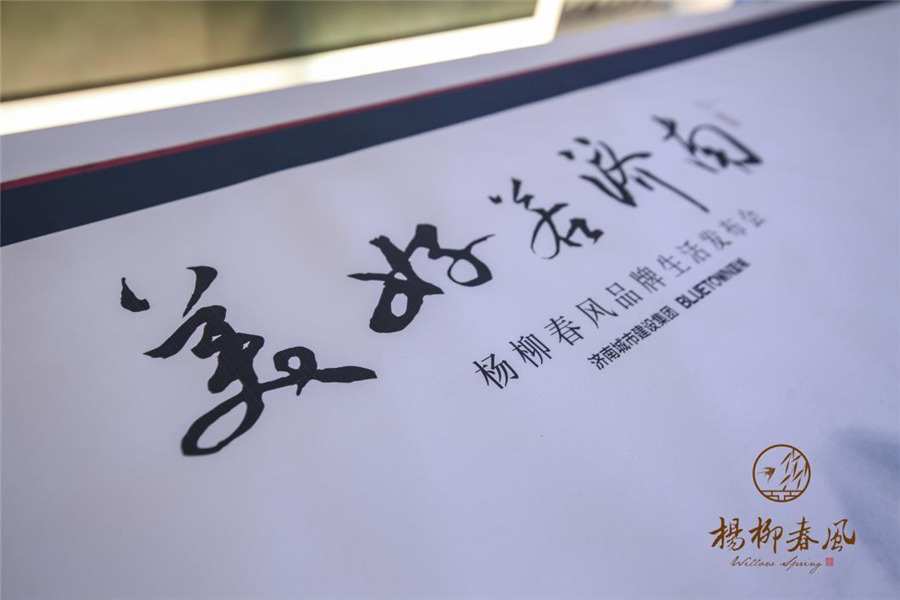 美好若济南
杨柳春风品牌生活发布会
济南城市建设集团 BLUETOWN蓝城
楊柳春風
Willows Spring